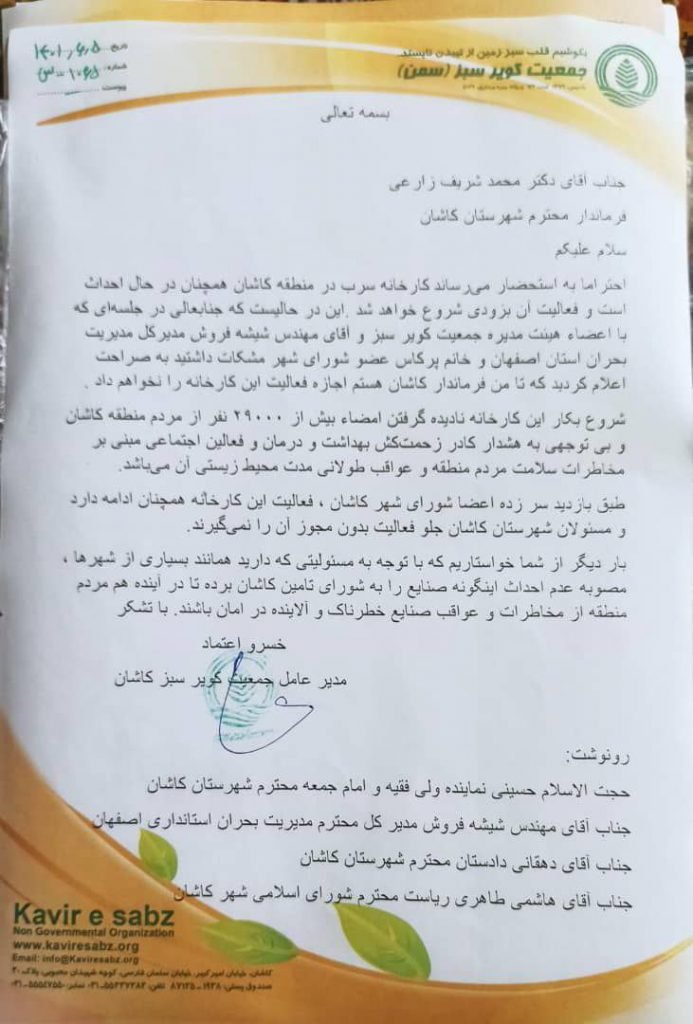 بکوشیم قلب سبز زمین از تپیدن نایستد
جمعیت کویر سبز (سمن)
تاریخ: ۱۴۰۱,۶,۵
شماره:
پیوست:
بسمه تعالی
جناب آقای دکتر محمد شریف زارعی
فرماندار محترم شهرستان کاشان
سلام علیکم
احتراما به استحضار می‌رساند کارخانه سرب در منطقه کاشان همچنان در حال احداث
است و فعالیت آن بزودی شروع خواهد شد .این در حالیست که جنابعالی در جلسه‌ای که
با اعضاء هیئت مدیره جمعیت کویر سبز و آقای مهندس شیشه فروش مدیرکل مدیریت
بحران استان اصفهان و خانم پرکاس عضو شورای شهر مشکات داشتید به صراحت
اعلام کردید که تا من فرماندار کاشان هستم اجازه فعالیت این کارخانه را نخواهم داد .
شروع بکار این کارخانه نادیده گرفتن امضاء بیش از ۲۹۰۰۰ نفر از مردم منطقه کاشان
و بی توجهی به هشدار کادر زحمت‌کش بهداشت و درمان و فعالین اجتماعی مبنی بر
مخاطرات سلامت مردم منطقه و عواقب طولانی مدت محیط زیستی آن می‌باشد.
طبق بازدید سر زده اعضا شورای شهر کاشان ، فعالیت این کارخانه همچنان ادامه دارد
و مسئولان شهرستان کاشان جلو فعالیت بدون مجوز آن را نمی‌گیرند.
بار دیگر از شما خواستاریم که با توجه به مسئولیتی که دارید همانند بسیاری از شهرها ،
مصوبه عدم احداث اینگونه صنایع را به شورای تامین کاشان برده تا در آینده هم مردم
منطقه از مخاطرات و عواقب صنایع خطرناک و آلاینده در امان باشند. با تشکر
خسرو اعتماد
مدیر عامل جمعیت کویر سبز کاشان
رونوشت:
حجت الاسلام حسینی نماینده ولی فقیه و امام جمعه محترم شهرستان کاشان
جناب آقای مهندس شیشه فروش مدیر کل محترم مدیریت بحران استانداری اصفهان
جناب آقای دهقانی دادستان محترم شهرستان کاشان
جناب آقای هاشمی طاهری ریاست محترم شورای اسلامی شهر کاشان
Kavir e sabz
Non Governmental Organization
www.kaviresabz.org
Email: info@Kaviresabz.org
کاشان، خیابان امیرکبیر، خیابان سلمان فارسی، کوچه شهیدان محبوبی، پلاک ۲۰
صندوق پستی: ۱۹۲۸-۸۷۱۳۵ تلفن: ۵۵۳۳۷۲۸۲-۰۳۱ نمابر: ۵۵۵۴۷۵۵-۰۳۱